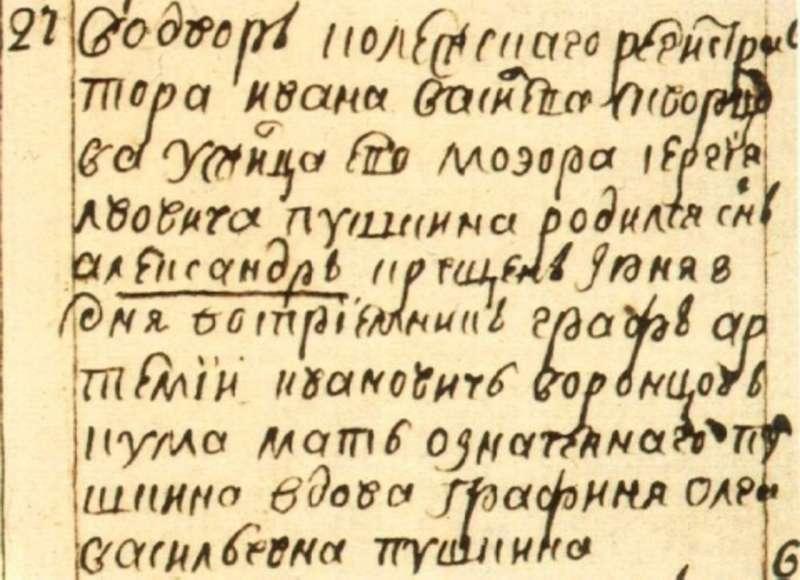 27 Во дворѣ колежскаго регистра
тора ивана васильева скворцо
ва у жильца ево моэора сергея
лвовича пушкина родился снъ
александръ крещенъ июня 8
дня восприемникъ графъ ар
темий ивановичь воронцовъ
кума мать означеннаго пу
шкина вдова графиня олга
васильевна пушкина 6